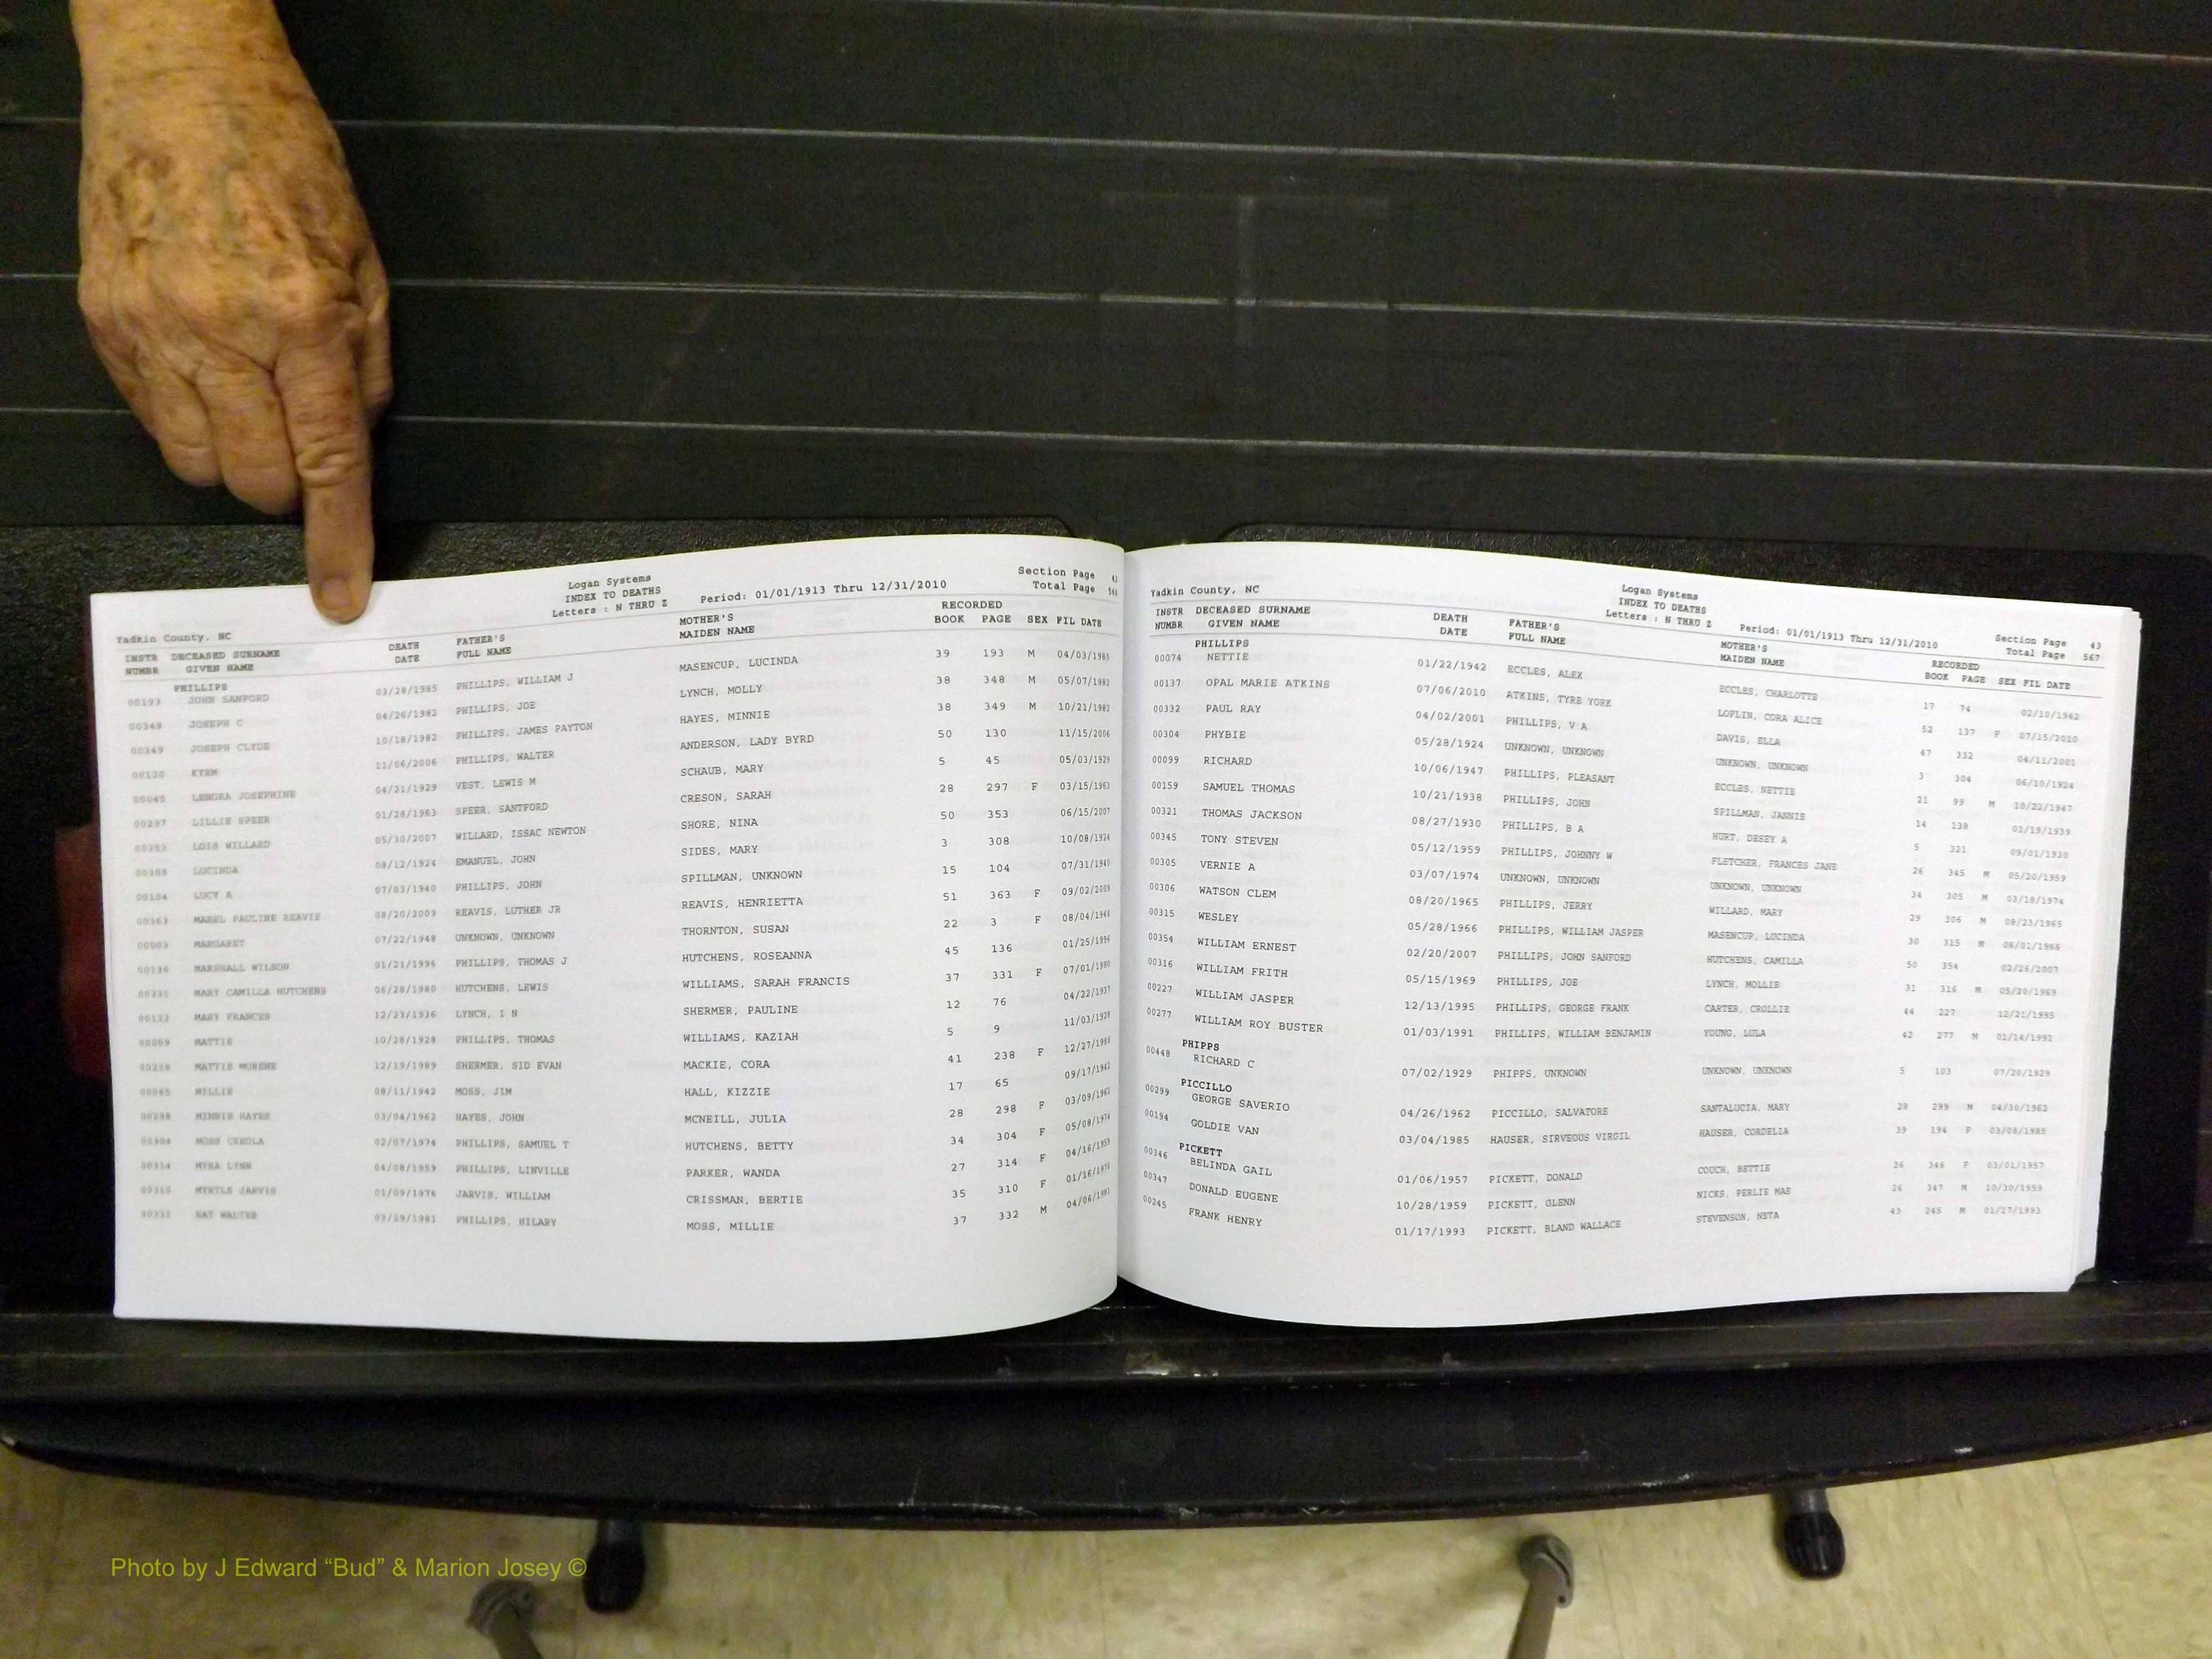 Logan Systems
INDEX TO DEATHS
Yadkin County, NC Letters : N THRU Z Period: 01/01/1913 Thru 12/31/2010 Section Page
Total Page 566
INSTR DECEASED SURNAME DEATH FATHER'S MOTHER'S RECORDED
NUMBR GIVEN NAME DATE FULL NAME MAIDEN NAME BOOK PAGE SEX FIL DATE
PHILLIPS
00193 JOHN SANFORD 03/28/1985 PHILLIPS, WILLIAM J MASENCUP, LUCINDA 39 193 M 04/03/1985
00348 JOSEPH C 04/26/1982 PHILLIPS, JOE LYNCH, MOLLY 38 348 M 05/07/1982
00349 JOSEPH CLYDE 10/18/1982 PHILLIPS, JAMES PAYTON HAYES, MINNIE 38 349 M 10/21/1982
00130 KYRM 11/06/2006 PHILLIPS, WALTER ANDERSON, LADY BYRD 50 130 11/15/2006
00045 LENORA JOSEPHINE 04/21/1929 VEST, LEWIS M SCHAUB, MARY 5 45 05/03/1929
00297 LILLIE SPEER 01/28/1963 SPEER, SANTFORD CRESON, SARAH 28 297 F 03/15/1963
00353 LOIS WILLARD 05/30/2007 WILLARD, ISSAC NEWTON SHORE, NINA 50 353 06/15/2007
00308 LUCINDA 08/12/1924 EMANUEL, JOHN SIDES, MARY 3 308 10/08/1924
00104 LUCY A 07/03/1940 PHILLIPS, JOHN SPILLMAN, UNKNOWN 15 104 07/31/1940
00363 MABEL PAULINE REAVIS 08/20/2009 REAVIS, LUTHER JR REAVIS, HENRIETTA 51 363 F 09/02/2009
00003 MARGARET 07/22/1948 UNKNOWN, UNKNOWN THORNTON, SUSAN 22 3 F 08/04/1948
00136 MARSHALL WILSON 01/21/1996 PHILLIPS, THOMAS J HUTCHENS, ROSEANNA 45 136 01/25/1996
00331 MARY CAMILLA HUTCHENS 06/28/1980 HUTCHENS, LEWIS WILLIAMS, SARAH FRANCIS 37 331 F 07/01/1980
MARY FRANCES 12/23/1936 LYNCH, I N SHERMER, PAULINE 12 76 04/22/1937
00009 MATTIE 10/28/1928 PHILLIPS, THOMAS WILLIAMS, KAZIAH 5 9 11/03/1928
00238 MATTIE MORENE 12/19/1989 SHERMER, SID EVAN MACKIE, CORA 41 238 F 12/27/1989
00065 MILLIE 08/11/1942 MOSS, JIM HALL, KIZZIE 17 65 09/17/1942
00298 MINNIE HAYES 03/04/1962 HAYES, JOHN MCNEILL, JULIA 28 298 F 03/09/1962
00304 MOSS CREOLA 02/07/1974 PHILLIPS, SAMUEL T HUTCHENS, BETTY 34 304 F 05/08/1974
00314 MYRA LYNN 04/08/1959 PHILLIPS, LINVILLE PARKER, WANDA 27 314 F 04/16/1959
00310 MYRTLE JARVIS 01/09/1976 JARVIS, WILLIAM CRISSMAN, BERTIE 35 310 F 01/16/1976
00332 NAT WALTER 03/29/1981 PHILLIPS, HILARY MOSS, MILLIE 37 332 M 04/06/1981
Logan Systems
INDEX TO DEATHS
Yadkin County, NC Letters : N THRU Z Period: 01/01/1913 Thru 12/31/2010 Section Page 43
Total Page 567
INSTR DECEASED SURNAME DEATH FATHER'S MOTHER'S RECORDED
NUMBR GIVEN NAME DATE FULL NAME MAIDEN NAME BOOK PAGE SEX FIL DATE
PHILLIPS
00074 NETTIE 01/22/1942 ECCLES, ALEX ECCLES, CHARLOTTE 17 74 02/10/1942
00137 OPAL MARIE ATKINS 07/06/2010 ATKINS, TYRE YORK LOFLIN, CORA ALICE 52 137 F 07/15/2010
00332 PAUL RAY 04/02/2001 PHILLIPS, V A DAVIS, ELLA 47 332 04/11/2001
00304 PHYBIE 05/28/1924 UNKNOWN, UNKNOWN UNKNOWN, UNKNOWN 3 304 06/10/1924
00099 RICHARD 10/06/1947 PHILLIPS, PLEASANT ECCLES, NETTIE 21 99 M 10/22/1947
00159 SAMUEL THOMAS 10/21/1938 PHILLIPS, JOHN SPILLMAN, JANNIE 14 138 01/19/1939
00321 THOMAS JACKSON 08/27/1930 PHILLIPS, B A HURT, DESEY A 5 321 09/01/1930
00345 TONY STEVEN 05/12/1959 PHILLIPS, JOHNNY W FLETCHER, FRANCES JANE 26 345 M 05/20/1959
00305 VERNIE A 03/07/1974 UNKNOWN, UNKNOWN UNKNOWN, UNKNOWN 34 305 M 03/18/1974
00306 WATSON CLEM 08/20/1965 PHILLIPS, JERRY WILLARD, MARY 29 306 M 08/23/1965
00315 WESLEY 05/28/1966 PHILLIPS, WILLIAM JASPER MASENCUP, LUCINDA 30 315 M 06/01/1966
00354 WILLIAM ERNEST 02/20/2007 PHILLIPS, JOHN SANFORD HUTCHENS, CAMILLA 50 354 02/26/2007
00316 WILLIAM FRITH 05/15/1969 PHILLIPS, JOE LYNCH, MOLLIE 31 316 M 05/20/1969
00227 WILLIAM JASPER 12/13/1995 PHILLIPS, GEORGE FRANK CARTER, CROLLIE 44 227 12/21/1995
00277 WILLIAM ROY BUSTER 01/03/1991 PHILLIPS, WILLIAM BENJAMIN YOUNG, LULA 42 277 M 01/14/1991
PHIPPS
00448 RICHARD C 07/02/1929 PHIPPS, UNKNOWN UNKNOWN, UNKNOWN 5 103 07/20/1929
PICCILLO
00299 GEORGE SAVERIO 04/26/1962 PICCILLO, SALVATORE SANTALUCIA, MARY 28 299 M 04/30/1962
00194 GOLDIE VAN 03/04/1985 HAUSER, SIRVEOUS VIRGIL HAUSER, CORDELIA 39 194 F 03/08/1985
PICKETT
00346 BELINDA GAIL 01/06/1957 PICKETT, DONALD COUCH, BETTIE 26 346 F 03/01/1957
00347 DONALD EUGENE 10/28/1959 PICKETT, GLENN NICKS, PERLIE MAE 26 347 M 10/30/1959
00245 FRANK HENRY 01/17/1993 PICKETT, BLAND WALLACE STEVENSON, NETA 43 245 M 01/27/1993
Photo by J Edward “Bud” & Marion Josey ©